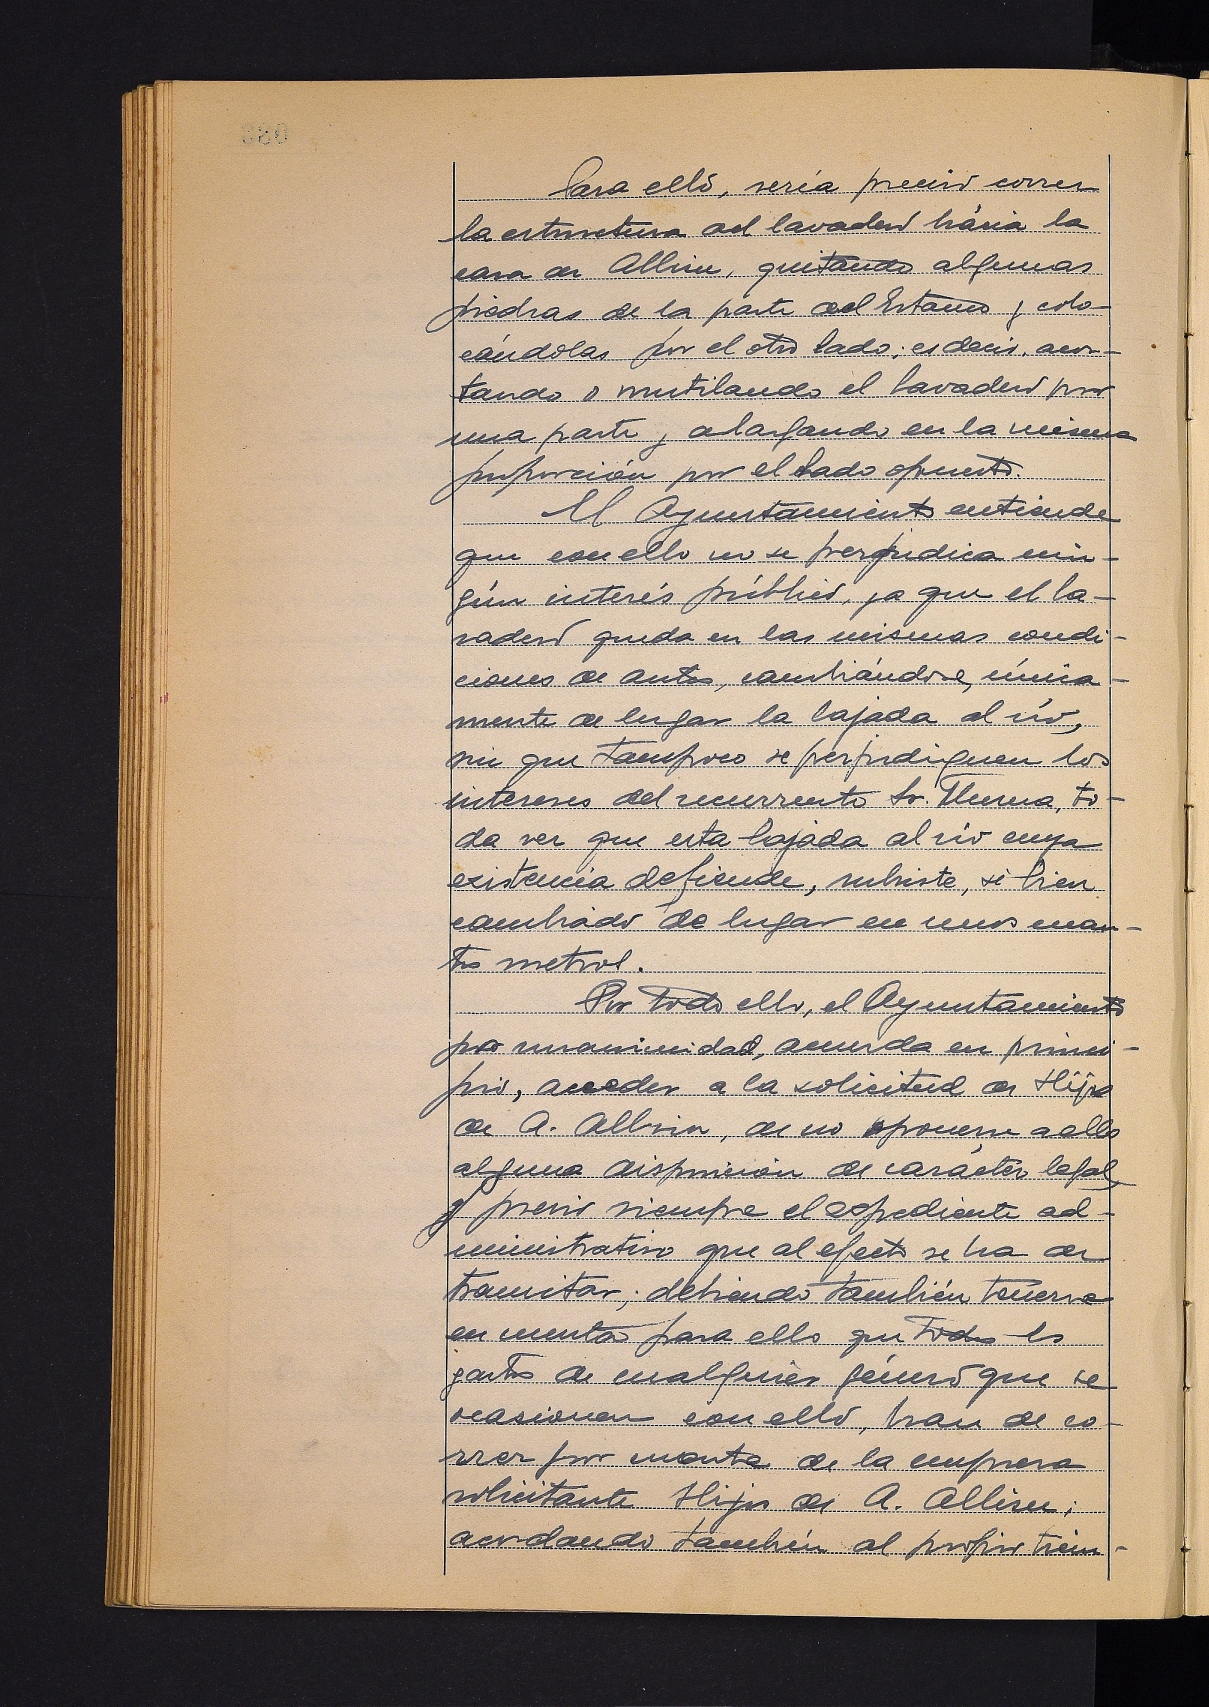 Para ello, sería preciso correr
la estructura del lavadero hácia la
casa de Albisu, quitando algunas
piedras de la parte del Estanco y colo-
cándolas por el otro lado; es decir, acor-
tando o mutilando el lavadero por
una parte y alargando en la misma
proporción por el lado opuesto.
El Ayuntamiento entiende
que con ello no se perjudica nin-
gún interés público, ya que el la-
vadero queda en las mismas condi-
ciones de antes, cambiándose, única-
mente de lugar la bajada al río,
sin que tampoco se perjudiquen los
intereses del recurrente Sr. , to-
da vez que esta bajada al río cuya
existencia defiende, subsiste, si bien
cambiado de lugar en unos cuan-
tos metros.
Por todo ello, el Ayuntamiento
por unanimidad, acuerda en princi-
pio, acceder a la solicitud de Hijos
de A. Albisu, de no oponerse a ello
alguna disposición de carácter legal,
y previo siempre el expediente ad-
ministrativo que al efecto se ha de
tramitar; debiendo también tenerse
en cuenta para ello que todos los
gastos de cualquier género que se
ocasionen con ello, han de co-
rrer por cuenta de la empresa
solicitante Hijos de A. Albisu;
acordando también al propio tiem-